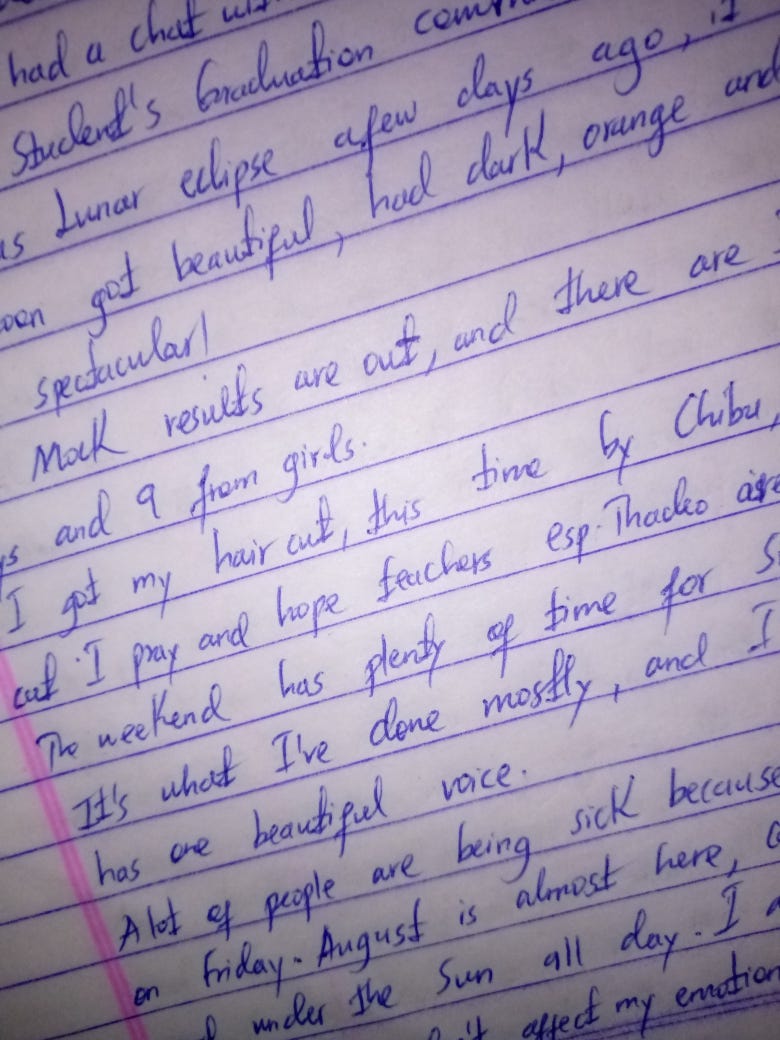 had a chat
Student's Graduation
Lunar eclipse afew days ago, it
got beautiful, had dark, orange and
spectacular!
Mock results are out, and there are
and 9 from girls.
I got my hair cut, this time by Chibu,
cut. I pray and hope teachers esp. Thadeo
The weekend has plenty of time for
It's what I've done mostly, and I
has one beautiful voice.
Alot of people are being sick because
on Friday. August is almost here,
under the Sun all day. I
affect my emotion